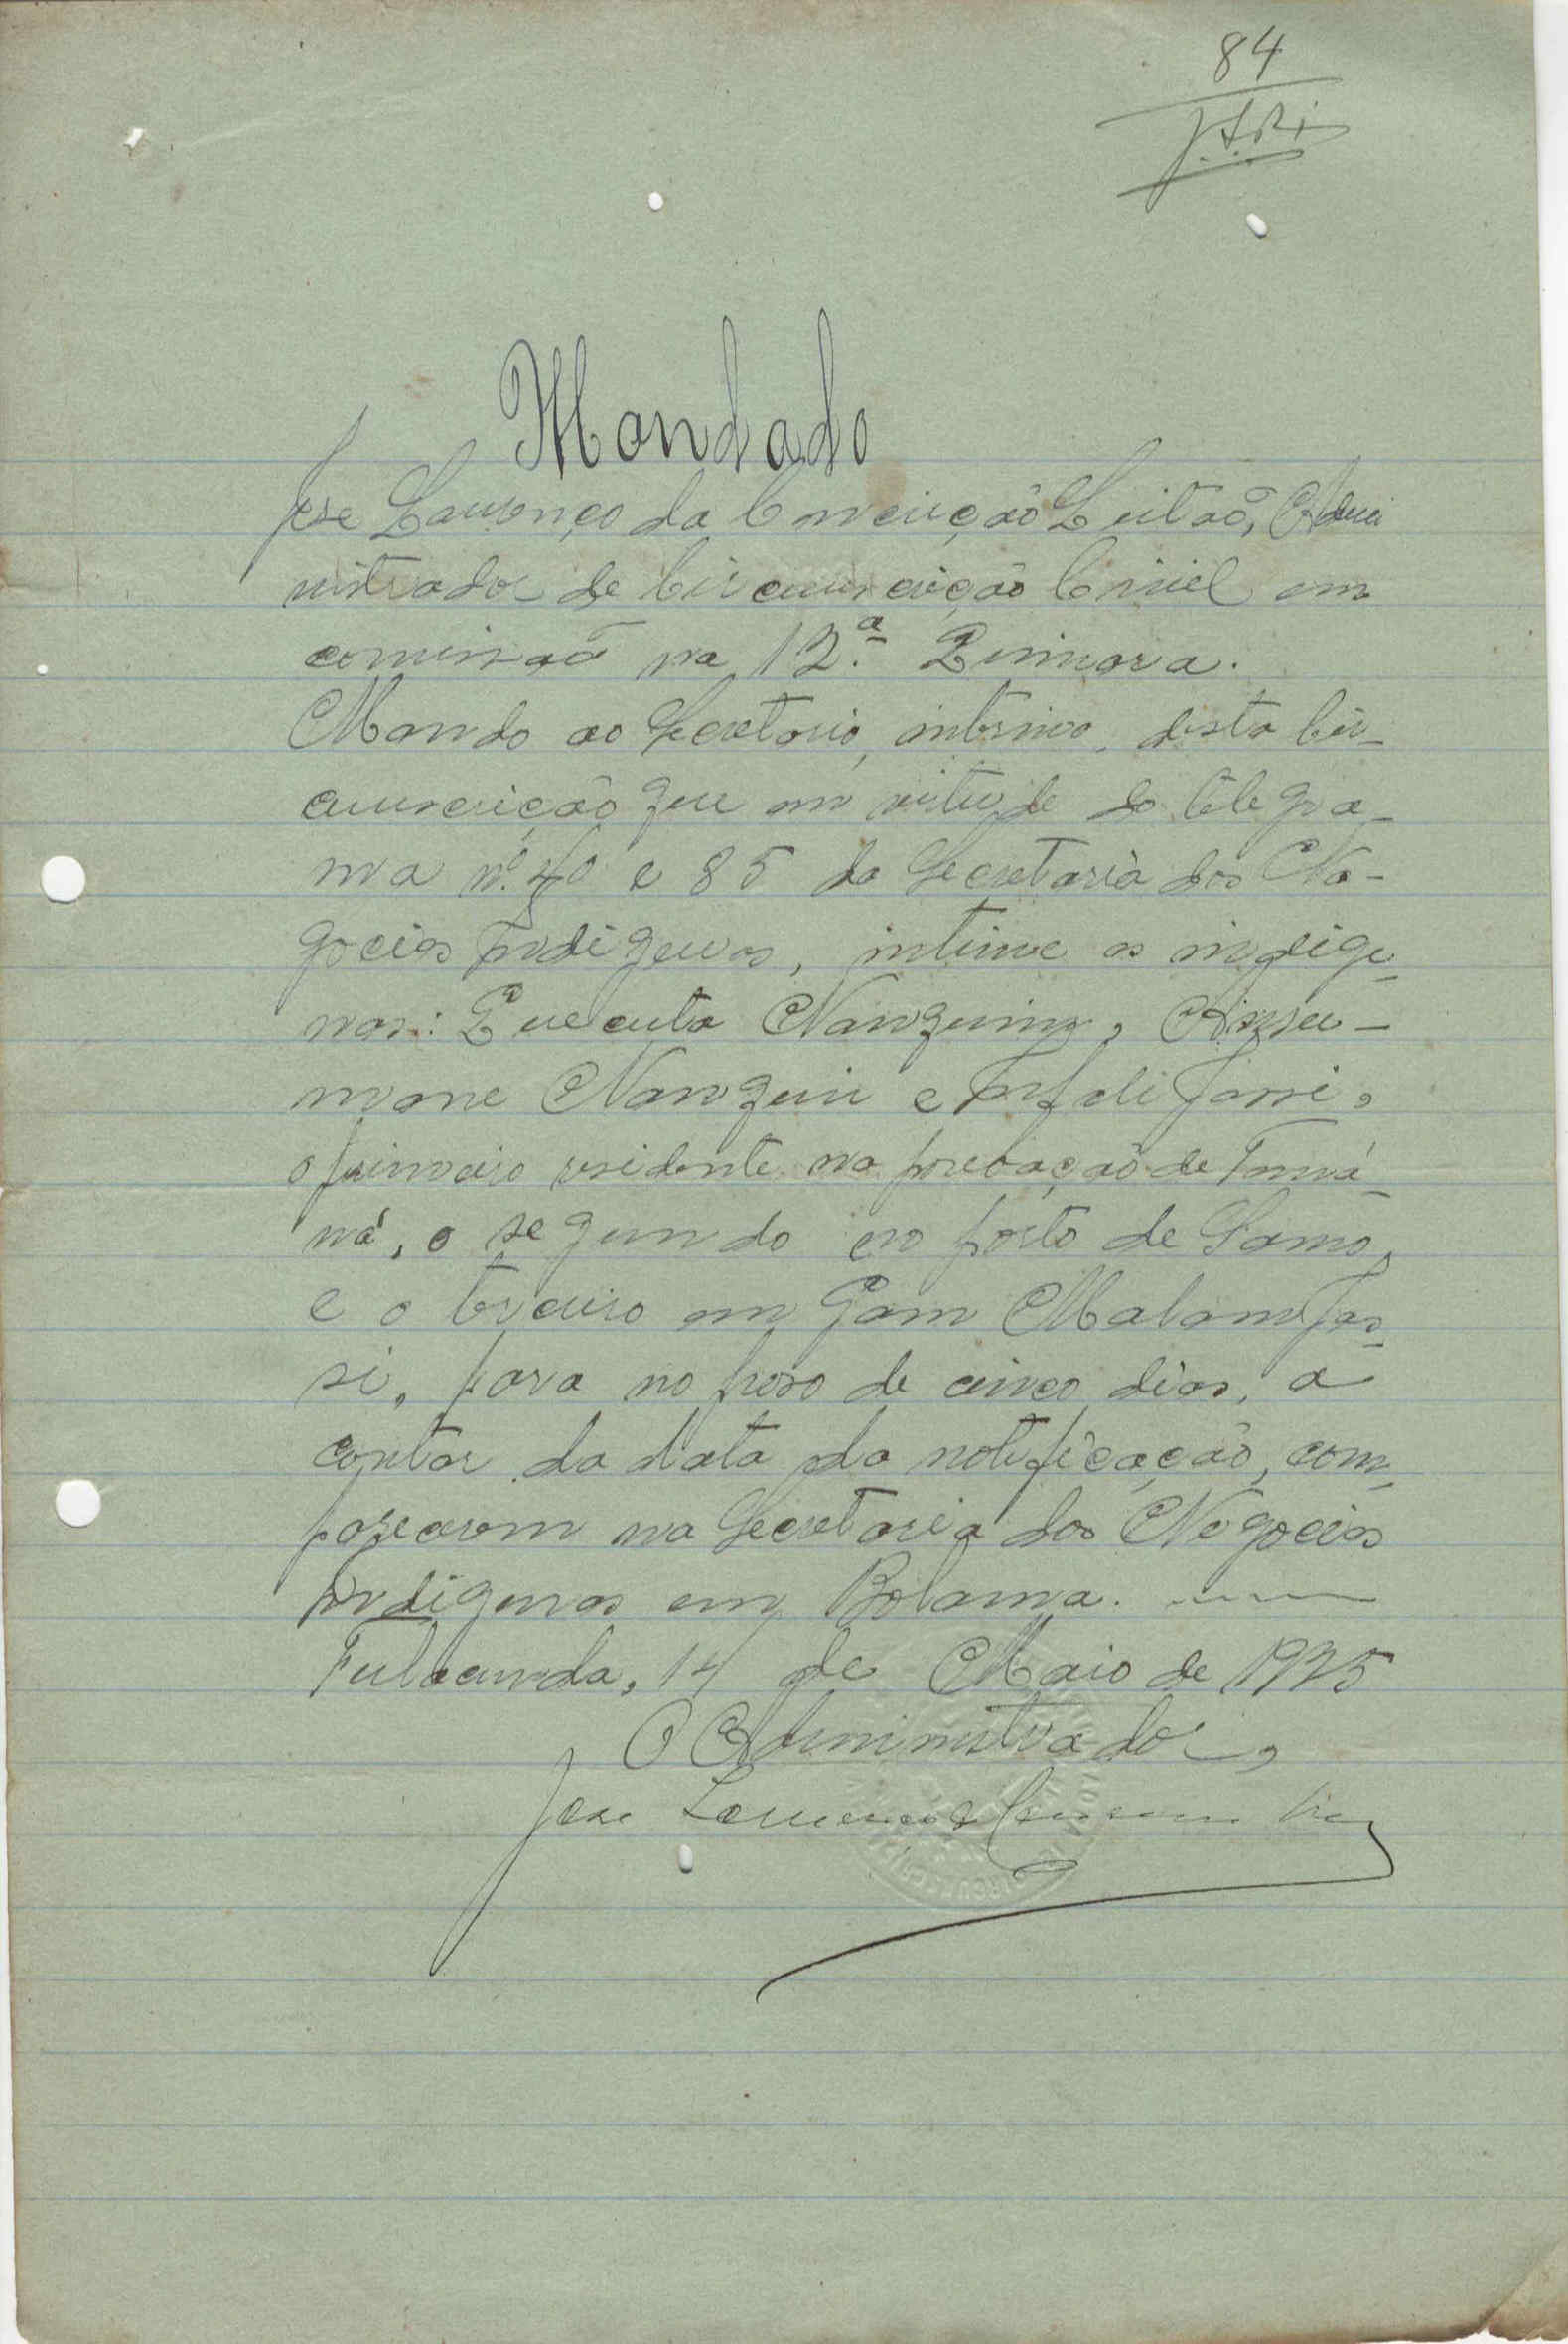 84
Mandado
José Lourenço da Conceição Leitão, Admi
nistrador de Circunscrição Civil em
comissão na 12.ª Quinara.
Mando ao Secretario, interino, desta Cir-
cunscrição que em virtude do telegra-
ma nº. 40 e 85 da Secretaria dos Ne-
gocios Indigenas, intime os indige-
nas: Quecuta Nanquim,
Nanqui e Infali Jassi,
o primeiro residente na povoação de
o segundo no porto de Gamo,
e o terceiro em Gam Malam Jas-
si, para no praso de cinco dias, a
contar da data da notificação, com-
parecerem na Secretaria dos Negocios
Indigenas em Bolama.
Fulacunda, 14 de Maio de 1925
O Administrador,
José Lourenço da Conceição